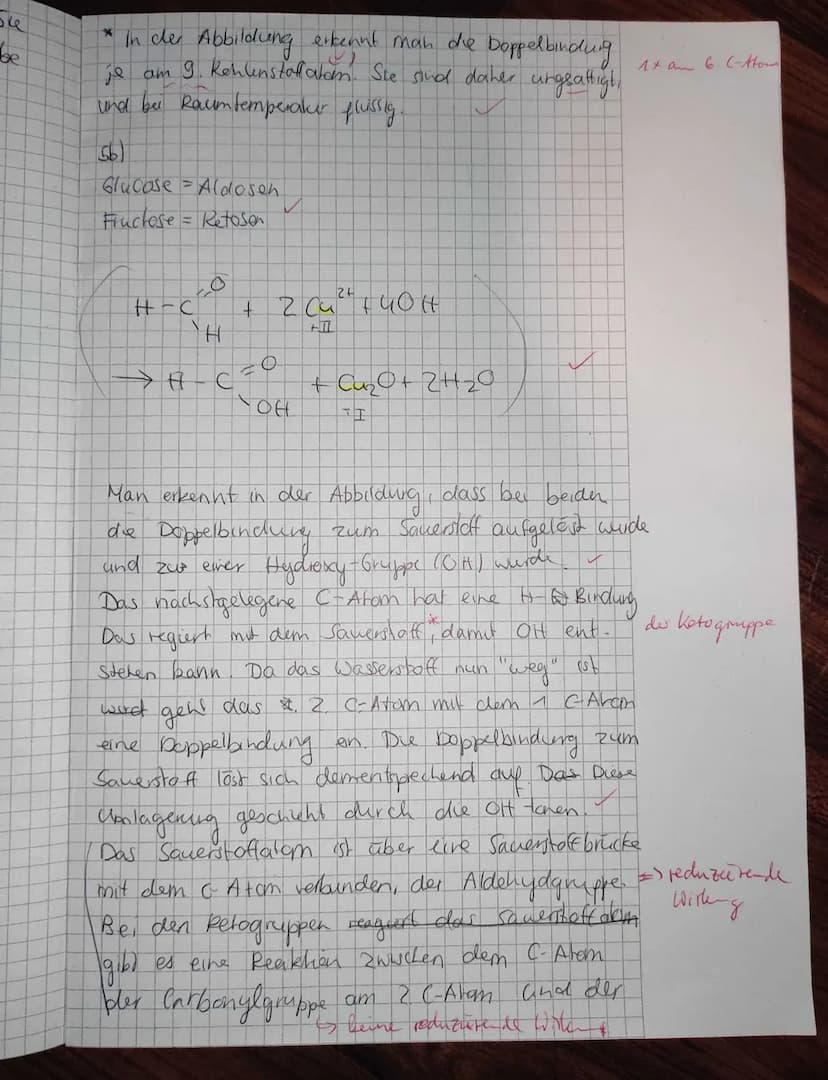 * In der Abbildung erkennt man die Doppelbindung
je am 9. Kohlenstoffatom. Sie sind daher ungesättigt, 1x am 6. C-Atom
und bei Raumtemperatur flüssig.
5b)
Glucose = Aldosen
Fructose = Ketosen
H - C =O \H + 2 Cu²⁺ + 4OH
+II
→ H - C =O \OH + Cu₂O + 2H₂O
+I
Man erkennt in der Abbildung, dass bei beiden
die Doppelbindung zum Sauerstoff aufgelöst wurde
und zur einer Hydroxy-Gruppe (OH) wurde.
Das nächstgelegene C-Atom hat eine H- Bindung
Das regiert mit dem Sauerstoff*, damit OH ent- * der Ketogruppe
stehen kann. Da das Wasserstoff nun "weg" ist
geht das 2. C-Atom mit dem 1 C-Atom
eine Doppelbindung ein. Die Doppelbindung zum
Sauerstoff löst sich dementsprechend auf. Das Diese
Umlagerung geschieht durch die OH⁻ Ionen.
Das Sauerstoffatom ist über eine Sauerstoffbrücke
mit dem C-Atom verbunden, der Aldehydgruppe. => reduzierende
Wirkung
Bei den Ketogruppen reagiert das Sauerstoffatom
gibt es eine Reaktion zwischen dem C-Atom
der Carbonylgruppe am 2 C-Atom und der
↳ keine reduzierende Wirkung